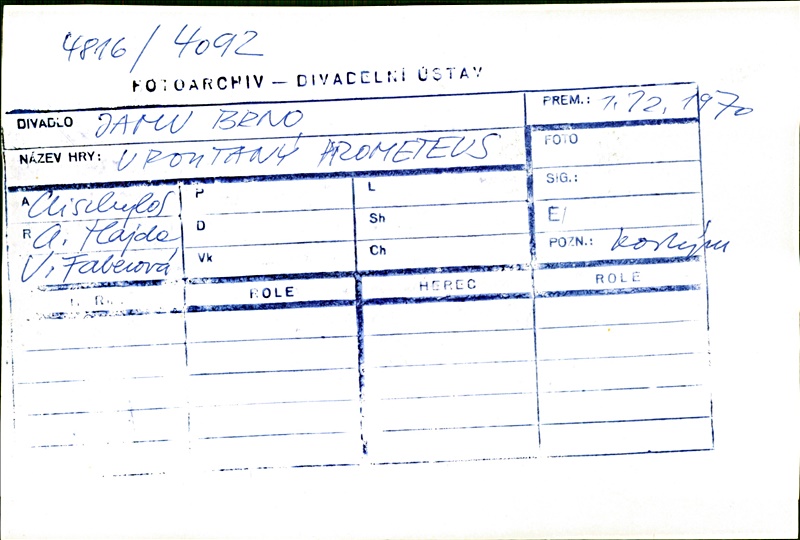 4816 / 4092
FOTOARCHIV — DIVADELNÍ ÚSTAV
DIVADLO JAMU BRNO
PREM.: 1. 12. 1970
NÁZEV HRY: UPOUTANÝ PROMETEUS
FOTO
SIG.:
A Aischylos
P
L
R A. Hajda
D
Sh
E/
V. Faberová
Vk
Ch
POZN.: kostým
ROLE
HEREC
ROLE